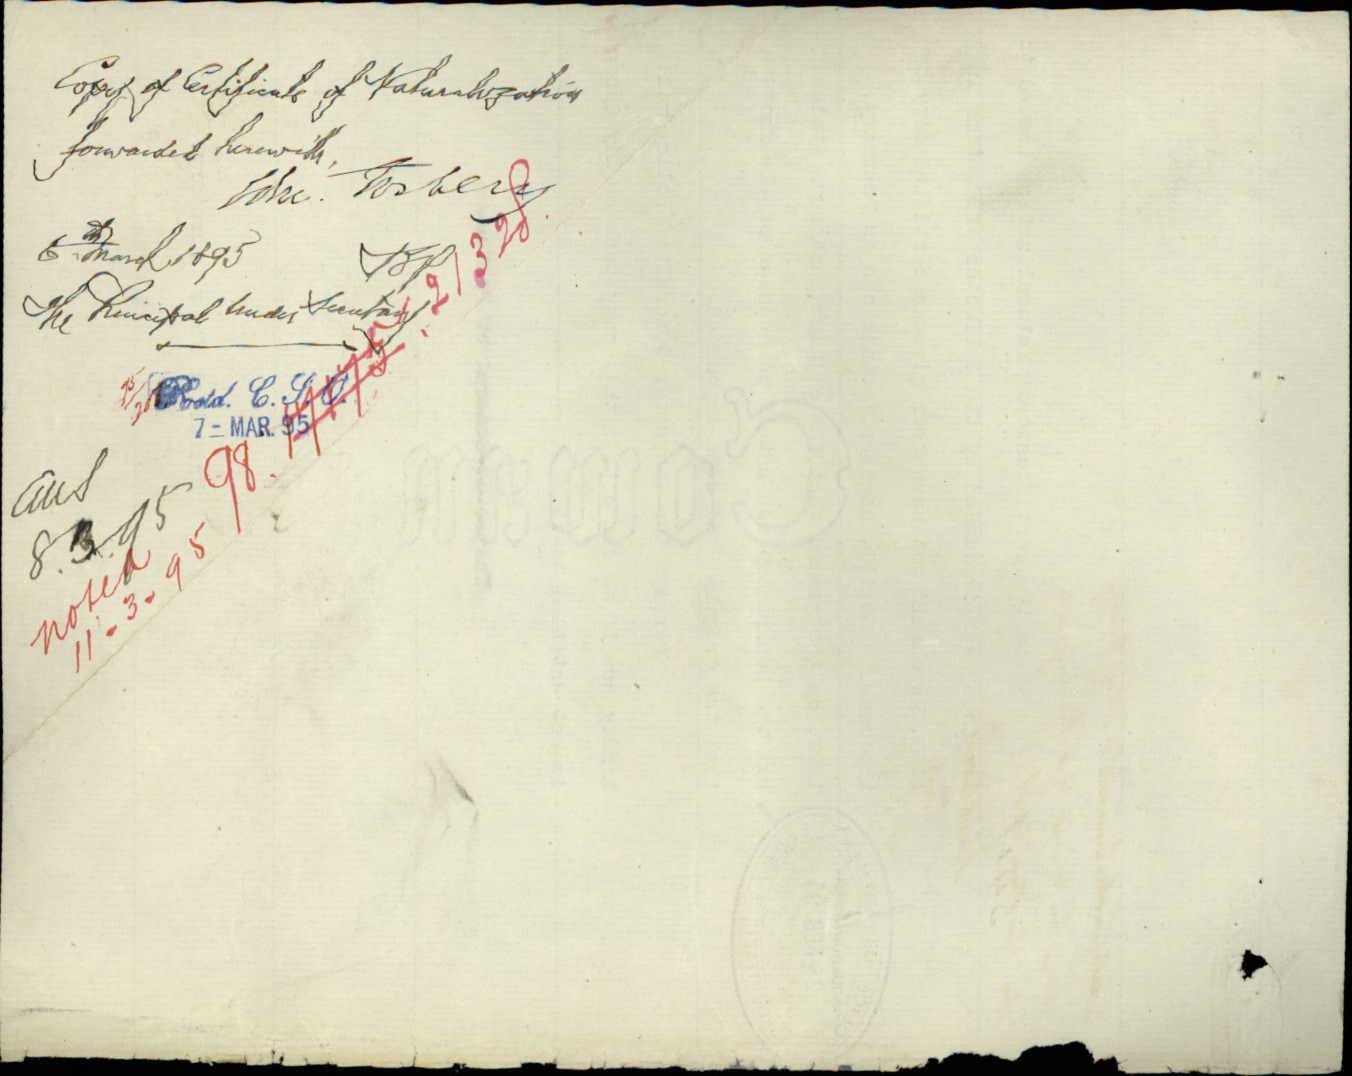 Copy of Certificate of Naturalization
forwarded herewith,
Edm. Fosbery
6th March 1895
The Principal Under Secretary
Recd. C. S. O.
7 - MAR. 95
8.3.95
noted
11.3.95